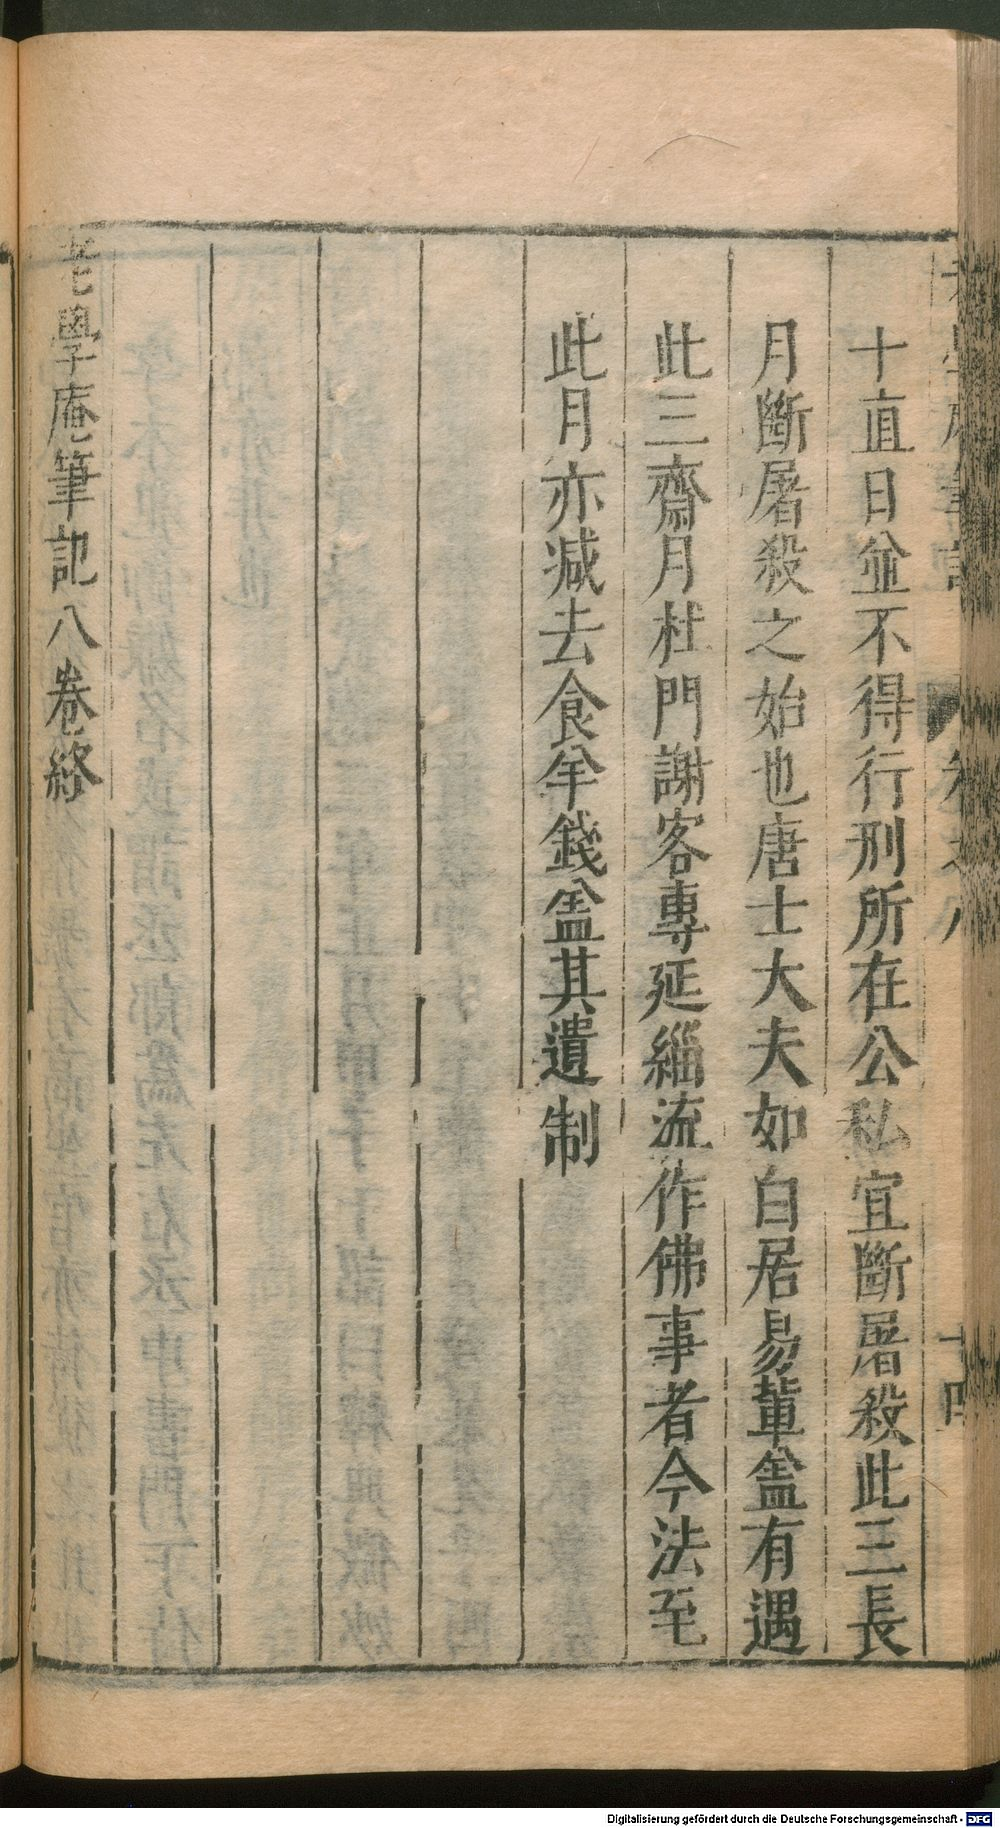 十直日並不得行刑所在公私宜斷屠殺此三長
月斷屠殺之始也唐士大夫如白居易輩盖有遇
此三齋月杜門謝客專延緇流作佛事者今法至
此月亦减去食羊錢盖其遺制
老學庵筆記八卷終
Digitalisierung gefördert durch die Deutsche Forschungsgemeinschaft - DFG